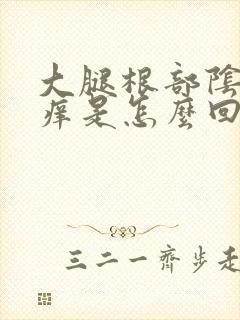 大腿根部陰
痒是怎麼回
三二一齊步走